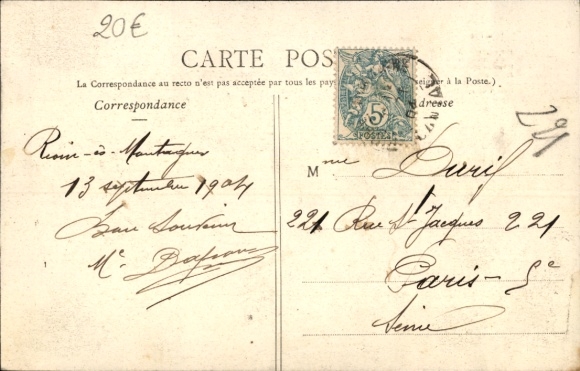 20€
CARTE POS
La Correspondance au recto n'est pas acceptée par tous les pays seigner à la Poste.)
Correspondance
dresse
221
5
POSTES
Riom-ès-Montagnes
13 septembre 1904
Bon Souvenir
Mme
221 Rue St Jacques 221
Paris - 5e
Seine